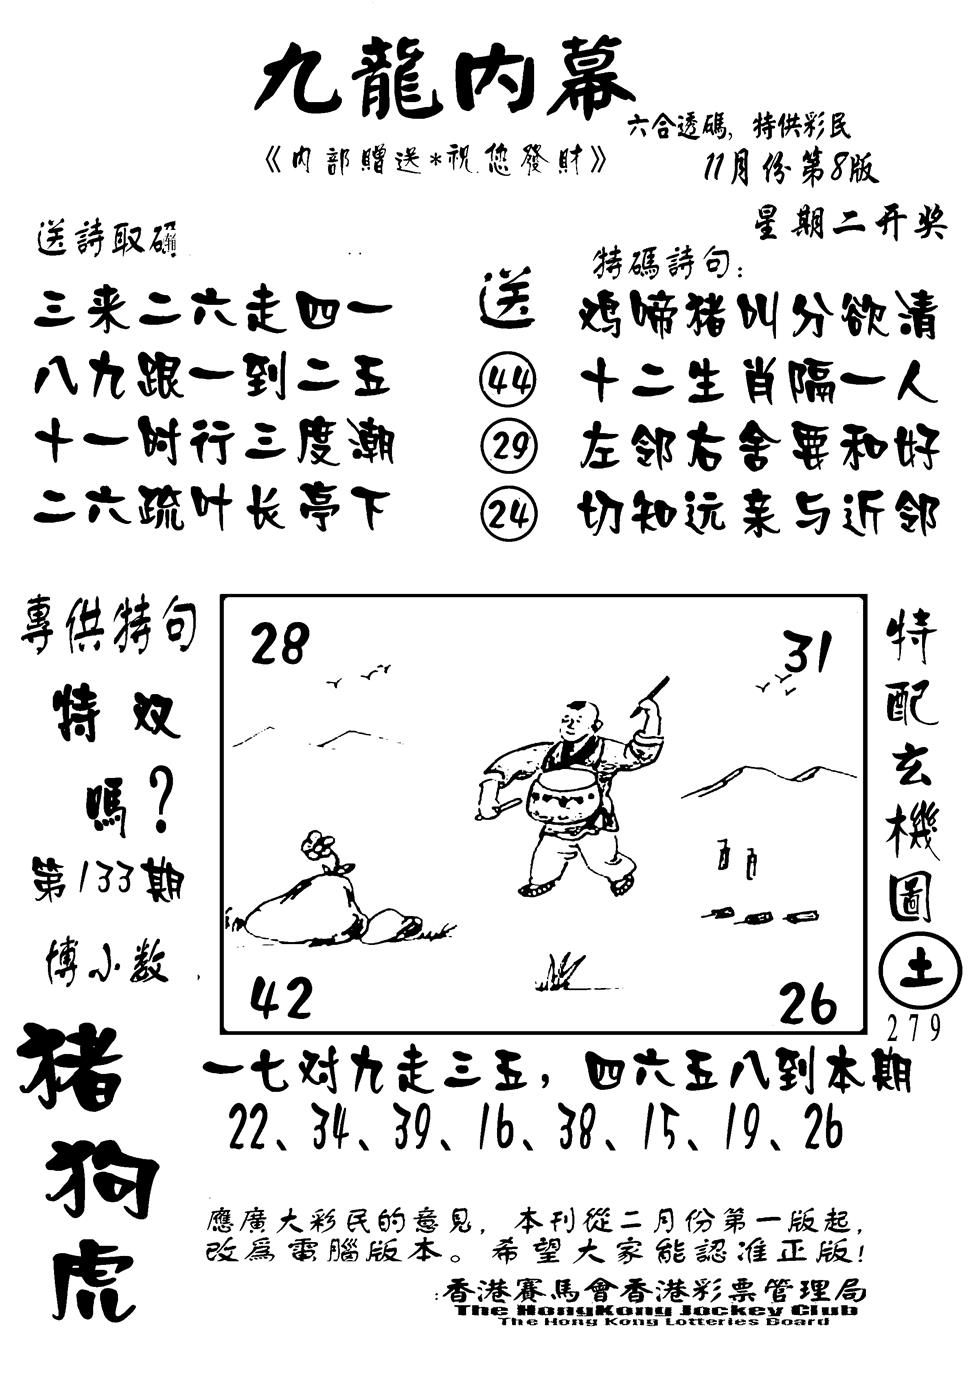 九龍内幕
六合透碼，特供彩民
《内部贈送*祝您發財》
11月份第8版
星期二开奖
送詩取
三来二六走四一
八九跟一到二五
十一时行三度潮
二六疏叶长亭下
送
44
29
24
特碼詩句：
鸡啼猪叫分欲清
十二生肖隔一人
左邻右舍要和好
切知远亲与近邻
專供特句
特双
嗎？
第133期
博小数
猪
狗
虎
28
31
42
26
特配玄機圖
土
279
一七对九走三五，四六五八到本期
22、34、39、16、38、15、19、26
應廣大彩民的意見，本刊從二月份第一版起，
改為電腦版本。希望大家能認准正版！
:香港賽馬會香港彩票管理局
The HongKong Jockey Club
The Hong Kong Lotteries Board